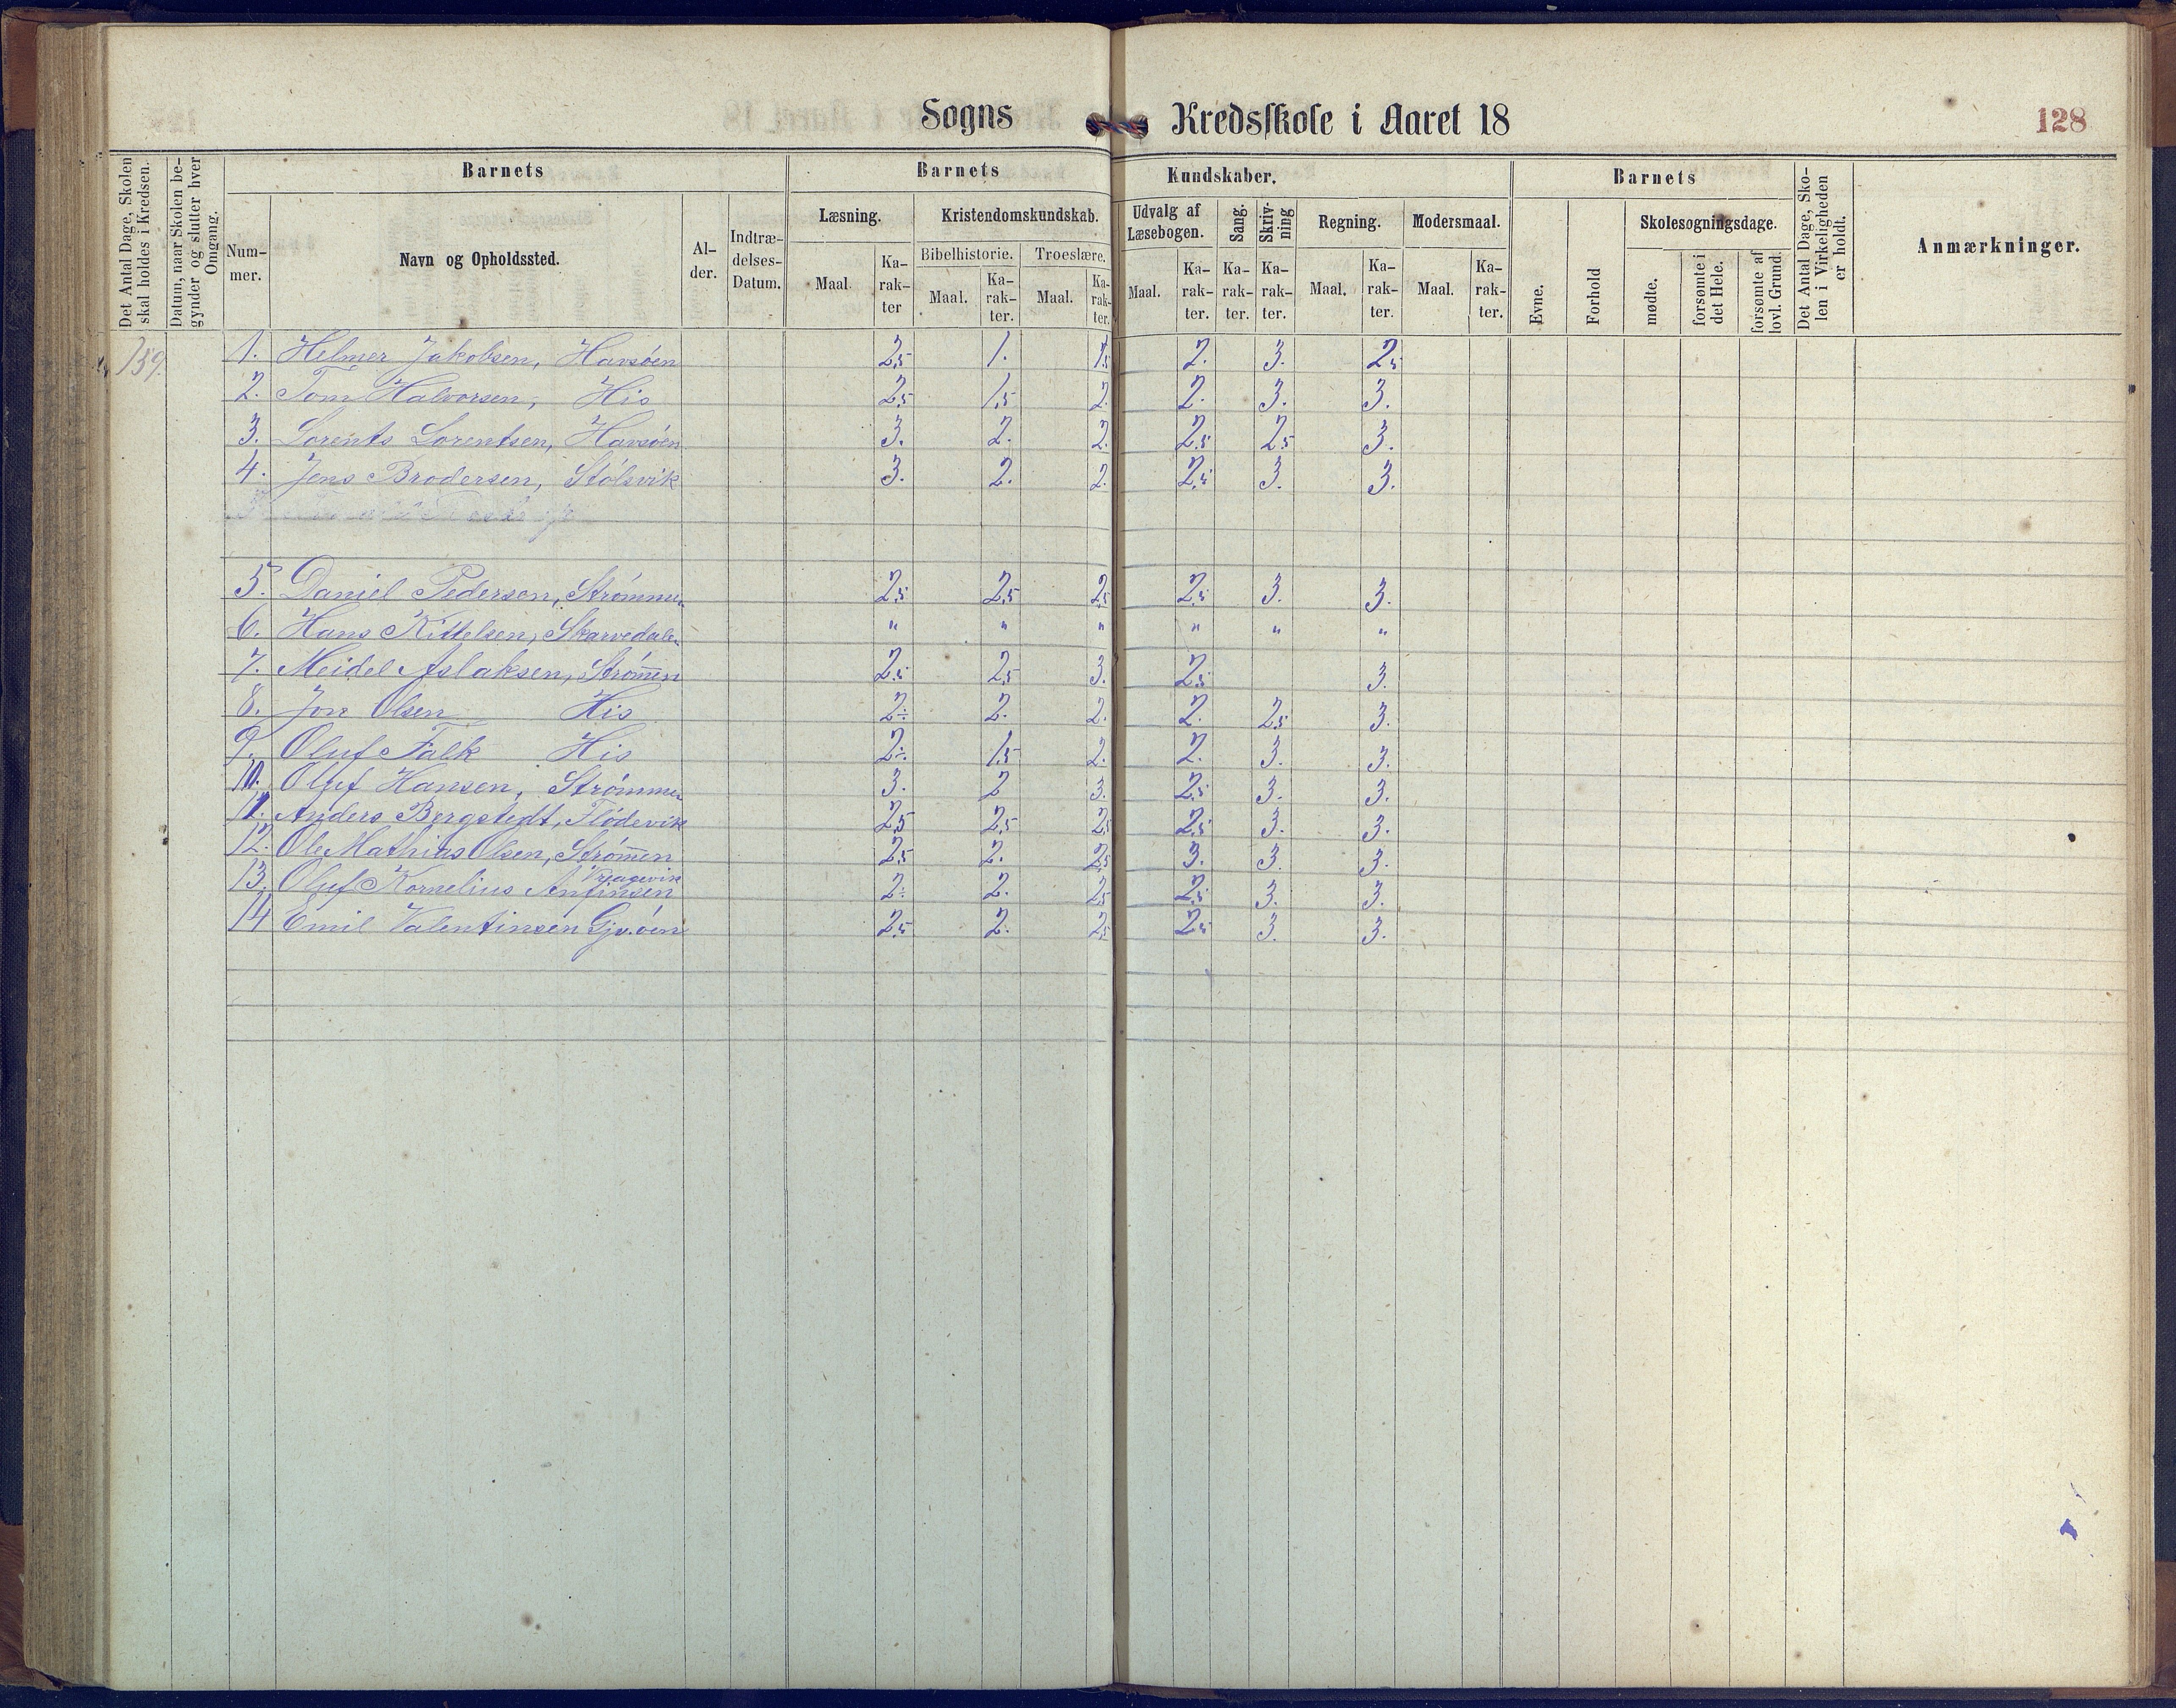 Sogns Kredsskole i Aaret 18 128
Det Antal Dage, Skolen skal holdes i Kredsen.
Datum, naar Skolen begynder og slutter hver Omgang.
Barnets
Nummer.
Navn og Opholdssted.
Alder.
Indtrædelses-Datum.
Barnets Kundskaber.
Læsning.
Maal. Karakter
Kristendomskundskab.
Bibelhistorie. Troeslære.
Maal. Karakter. Maal. Karakter.
Udvalg af Læsebogen.
Maal. Karakter.
Sang. Karakter.
Skrivning Karakter.
Regning.
Maal. Karakter.
Modersmaal.
Maal. Karakter.
Barnets
Evne.
Forhold
Skolesøgningsdage.
mødte.
forsømte i det Hele.
forsømte af lovl. Grund.
Det Antal Dage, Skolen i Virkeligheden er holdt.
Anmærkninger.
159. 1. Helmer Jakobsen, Havsöen 2,5 1. 1,5 2. 3. 2,5
2. Tom Halvorsen, His 2,5 1,5 2. 2. 3. 3.
3. Lorents Lorentsen, Havsöen 3. 2. 2. 2,5 2,5 3.
4. Jens Brodersen, Stölsvik 3. 2. 2. 2,5 3. 3.
5. Daniel Pedersen, Strömmen 2,5 2,5 2,5 2,5 3. 3.
6. Hans Kittelsen, Skarvedalen " " " " " "
7. Meidel Aslaksen, Strömen 2,5 2,5 3. 2,5 3.
8. Jon Olsen His 2÷ 2. 2. 2. 2,5 3.
9. Oluf Falk His 2÷ 1,5 2. 2. 3. 3.
10. Oluf Hansen, Strömmen 3. 2 3. 2,5 3. 3.
11. Anders Bergstedt, Flödevik 2,5 2,5 2,5 2,5 3. 3.
12. Ole Mathias Olsen, Strömen 2,5 2. 2,5 3. 3. 3.
13. Oluf Kornelius Anfinsen 2÷ 2. 2,5 2,5 3. 3.
14 Emil Valentinsen 2,5 2. 2,5 2,5 3. 3.